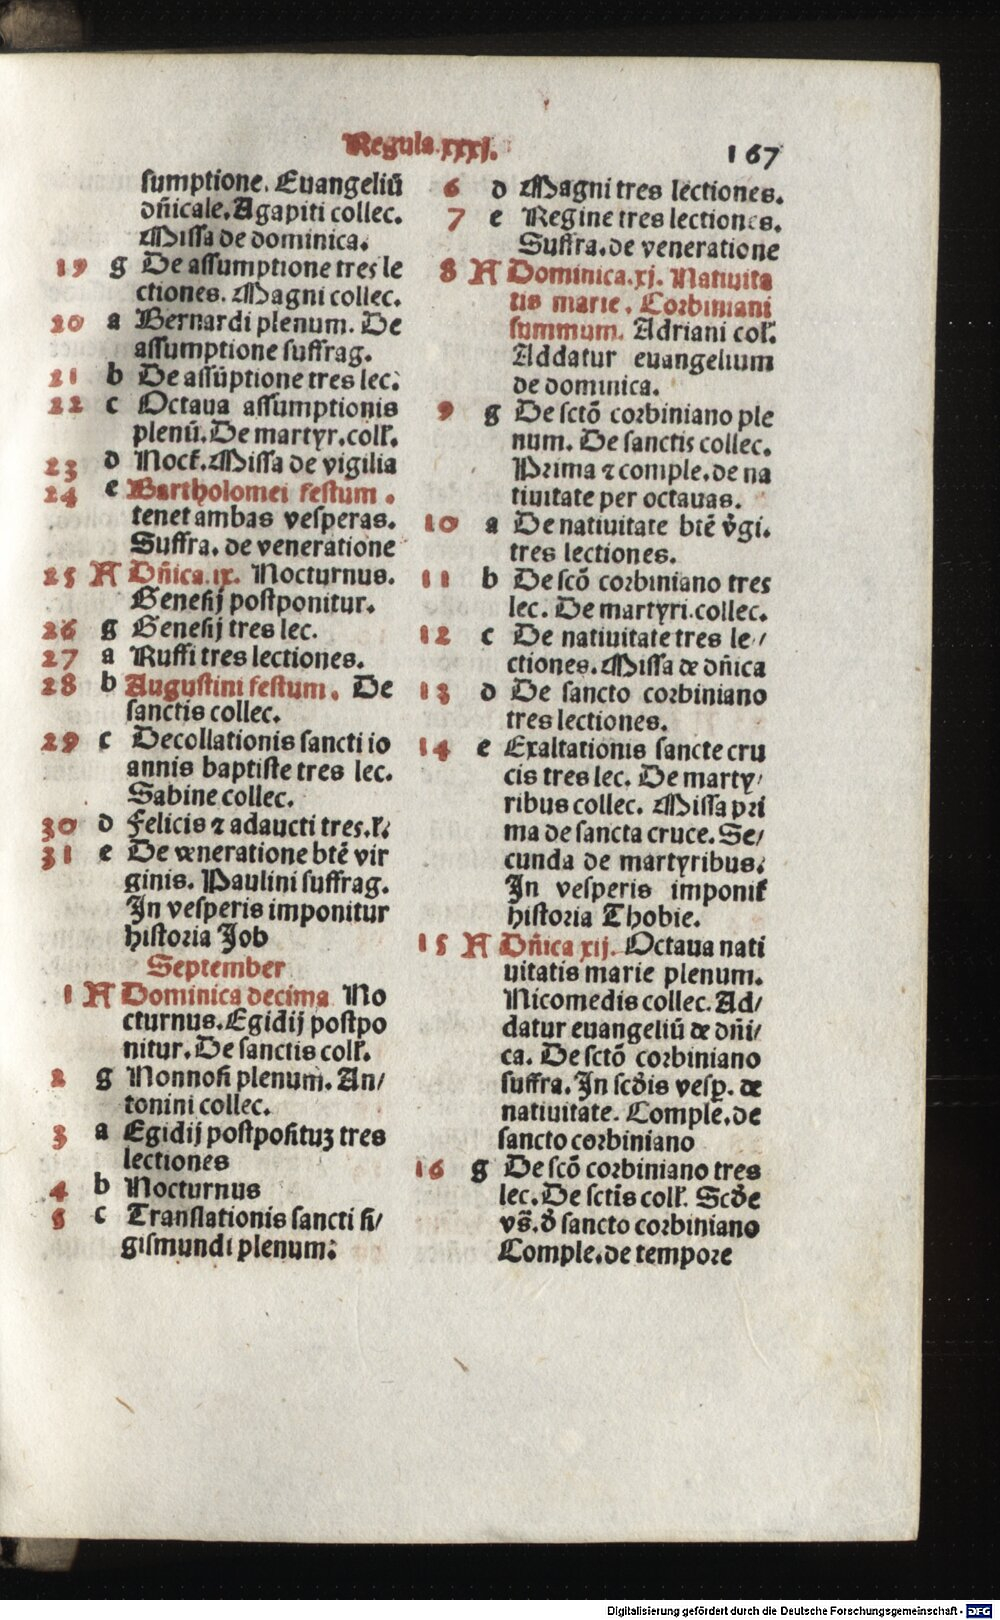 Regula.xxxj.
167
sumptione. Euangeliū
dn̄icale. Agapiti collec.
Missa de dominica.
19 g De assumptione tres le
ctiones. Magni collec.
20 a Bernardi plenum. De
assumptione suffrag.
21 b De assūptione tres lec.
22 c Octaua assumptionis
plenū. De martyr. coll'.
23 d Noct'. Missa de vigilia
24 e Bartholomei festum.
tenet ambas vesperas.
Suffra. de veneratione
25 A Dn̄ica.ix. Nocturnus.
Genesij postponitur.
26 g Genesij tres lec.
27 a Ruffi tres lectiones.
28 b Augustini festum. De
sanctis collec.
29 c Decollationis sancti io
annis baptiste tres lec.
Sabine collec.
30 d Felicis ⁊ adaucti tres.l'.
31 e De veneratione btē vir
ginis. Paulini suffrag.
In vesperis imponitur
historia Job
September
1 A Dominica decima No
cturnus. Egidij postpo
nitur. De sanctis coll'.
2 g Nonnosi plenum. An/
tonini collec.
3 a Egidij postposituʒ tres
lectiones
4 b Nocturnus
5 c Translationis sancti si/
gismundi plenum.
6 d Magni tres lectiones.
7 e Regine tres lectiones.
Suffra. de veneratione
8 A Dominica.xj. Natiuita
tis marie. Corbiniani
summum. Adriani col'.
Addatur euangelium
de dominica.
9 g De sctō corbiniano ple
num. De sanctis collec.
Prima ⁊ comple. de na
tiuitate per octauas.
10 a De natiuitate btē v̄gi.
tres lectiones.
11 b De scō corbiniano tres
lec. De martyri. collec.
12 c De natiuitate tres le/
ctiones. Missa de dn̄ica
13 d De sancto corbiniano
tres lectiones.
14 e Exaltationis sancte cru
cis tres lec. De marty/
ribus collec. Missa pri
ma de sancta cruce. Se/
cunda de martyribus.
In vesperis imponit'
historia Thobie.
15 A Dn̄ica xij. Octaua nati
uitatis marie plenum.
Nicomedis collec. Ad/
datur euangeliū de dn̄i/
ca. De sctō corbiniano
suffra. In scd̄is vesp̄. de
natiuitate. Comple. de
sancto corbiniano
16 g De scō corbiniano tres
lec. De sctīs coll'. Scd̄e
vs̄. d̄ sancto corbiniano
Comple. de tempore
Digitalisierung gefördert durch die Deutsche Forschungsgemeinschaft - DFG